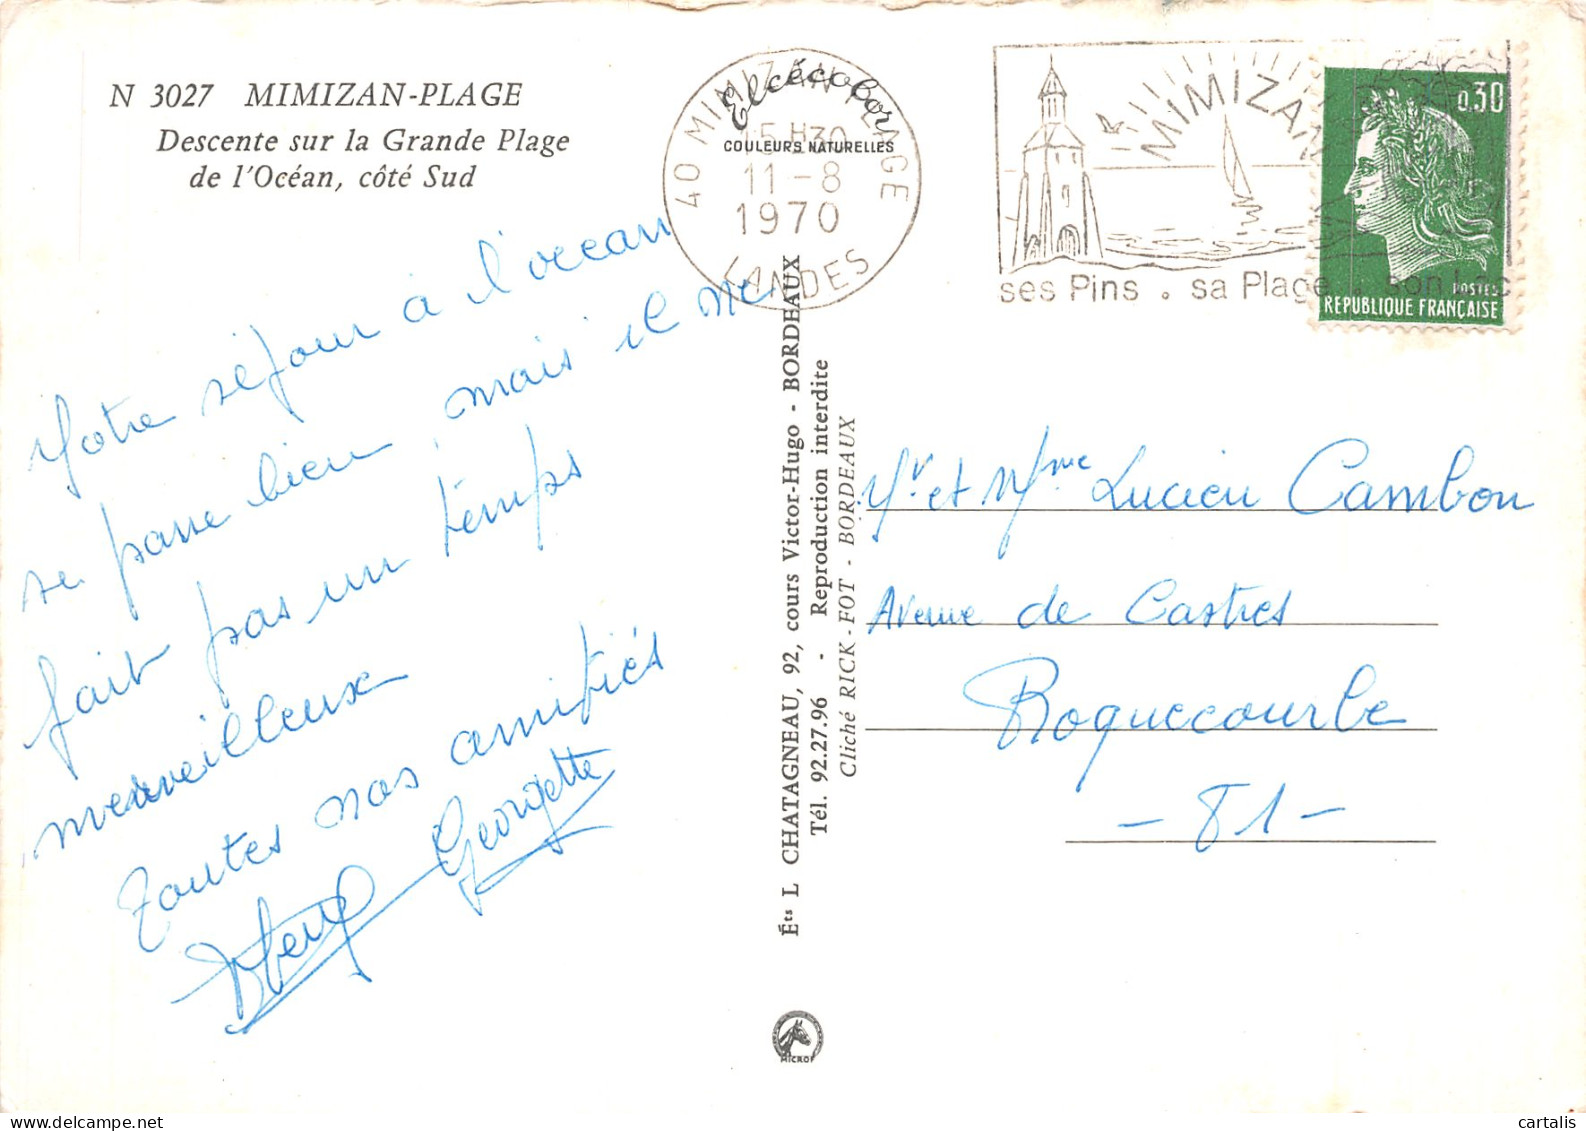 N 3027 MIMIZAN-PLAGE
Descente sur la Grande Plage
de l'Océan, côté Sud
Notre séjour à l'ocean
se passe bien, mais il ne
fait pas un temps
merveilleux
Toutes nos amitiés
Georgette
Elcécolor
COULEURS NATURELLES
40 MIMIZAN PLAGE
15H30
11-8
1970
LANDES
MIMIZAN
ses Pins . sa Plage . son Lac
0,30
POSTES
REPUBLIQUE FRANÇAISE
Éts L CHATAGNEAU, 92, cours Victor-Hugo - BORDEAUX
Tél. 92.27.96 - Reproduction interdite
Cliché RICK-FOT - BORDEAUX
Mr et Mme Lucien Cambon
Avenue de Castres
Roquecourbe
- 81 -
MICRO
cartalis